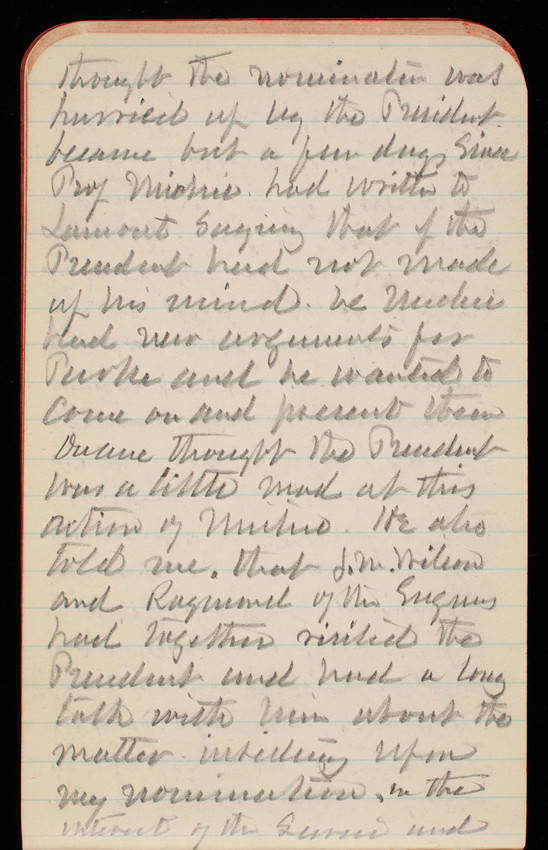 thought the nomination was
hurried up by the President
became but a few days since
Prof Michie had written to
Lamont saying that if the
President had not made
up his mind he Michie
had new arguments for
and he wanted to
come on and present them
Duane thought the President
was a little mad at this
action of Michie. He also
told me. that J.M. Wilson
and Raymond of the Engineers
had together visited the
President and had a long
talk with him about the
matter upon
my nomination, in the
interest of the Service and